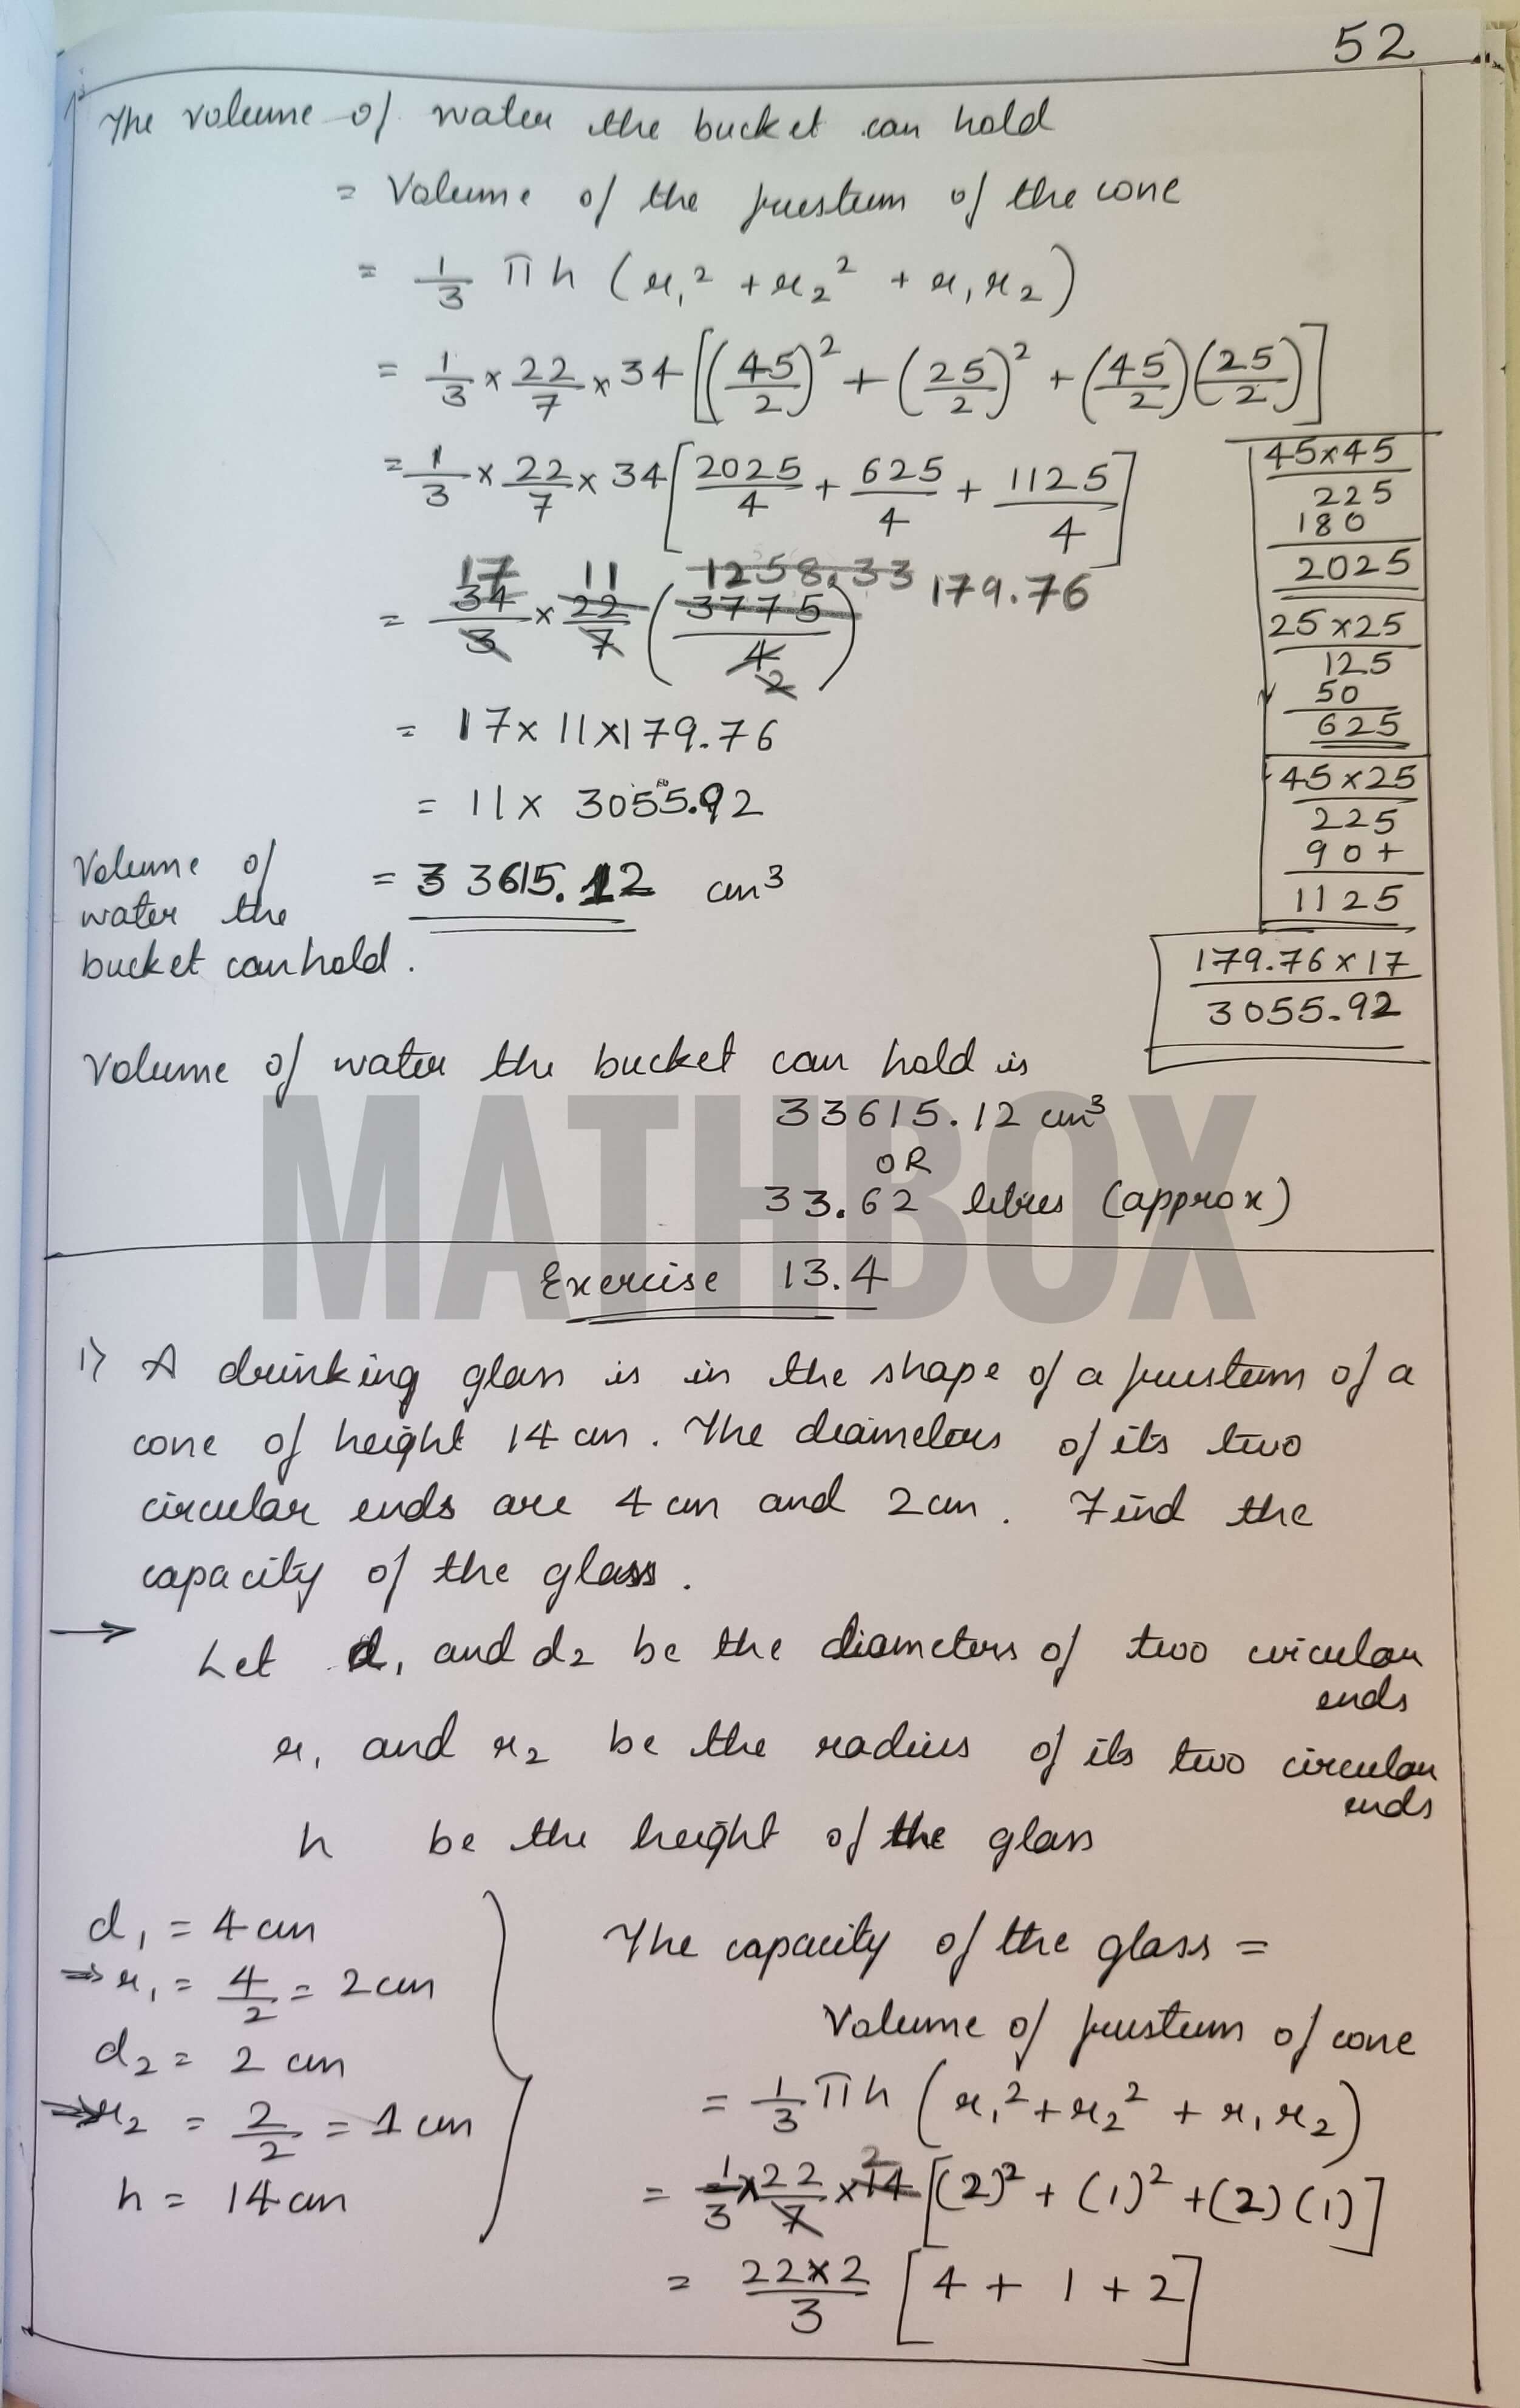 52
The volume of water the bucket can hold
= Volume of the frustum of the cone
= 1/3 πh (r₁² + r₂² + r₁r₂)
= 1/3 × 22/7 × 34 [(45/2)² + (25/2)² + (45/2)(25/2)]
= 1/3 × 22/7 × 34 [2025/4 + 625/4 + 1125/4]
17 11 1258.33 179.76
= 34/3 × 22/7 (3775/4)
2
= 17 × 11 × 179.76
= 11 × 3055.92
Volume of water the bucket can hold. = 33615.12 cm³
45×45
225
180
2025
25×25
125
50
625
45×25
225
90+
1125
179.76×17
3055.92
Volume of water the bucket can hold is
33615.12 cm³
OR
33.62 litres (approx)
MATHBOX
Exercise 13.4
1) A drinking glass is in the shape of a frustum of a
cone of height 14 cm. The diameters of its two
circular ends are 4 cm and 2 cm. Find the
capacity of the glass.
→ Let d₁ and d₂ be the diameters of two circular
ends
r₁ and r₂ be the radius of its two circular
ends
h be the height of the glass
d₁ = 4 cm
⇒ r₁ = 4/2 = 2 cm
d₂ = 2 cm
⇒ r₂ = 2/2 = 1 cm
h = 14 cm
The capacity of the glass =
Volume of frustum of cone
= 1/3 πh (r₁² + r₂² + r₁r₂)
2
= 1/3 × 22/7 × 14 [(2)² + (1)² + (2)(1)]
= 22×2/3 [4 + 1 + 2]